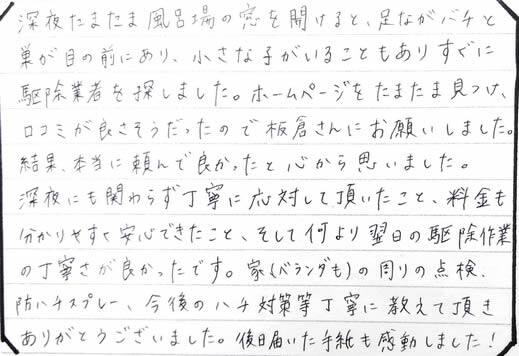 深夜たまたま風呂場の窓を開けると、足ながバチと
巣が目の前にあり、小さな子がいることもありすぐに
駆除業者を探しました。ホームページをたまたま見つけ、
口コミが良さそうだったので板倉さんにお願いしました。
結果、本当に頼んで良かったと心から思いました。
深夜にも関わらず丁寧に応対して頂いたこと、料金も
分かりやすく安心できたこと、そして何より翌日の駆除作業
の丁寧さが良かったです。家(ベランダも)の周りの点検、
防ハチスプレー、今後のハチ対策等丁寧に教えて頂き
ありがとうございました。後日届いた手紙も感動しました!